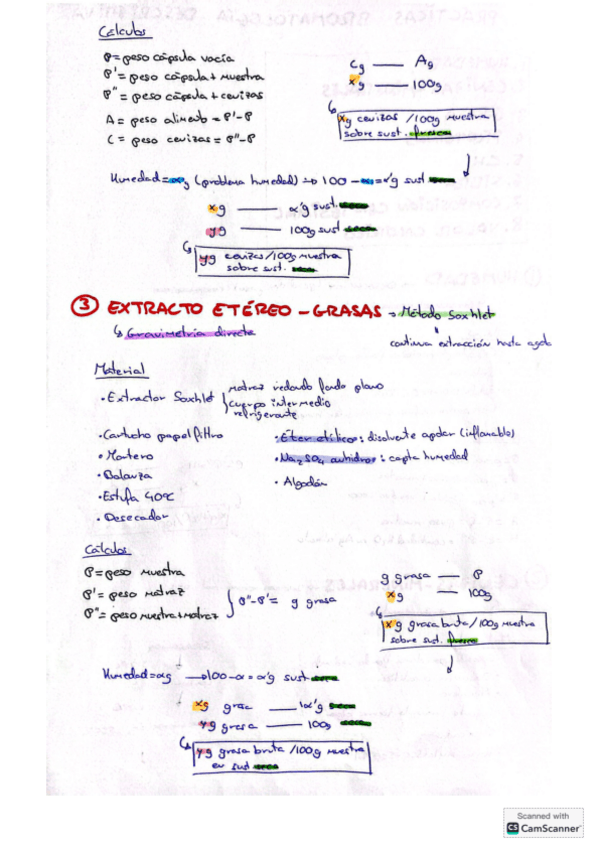 Cálculos
P = peso cápsula vacía
P' = peso cápsula + muestra
P" = peso cápsula + cenizas
A = peso alimento = P'-P
C = peso cenizas = P"-P
Cg — Ag
xg — 100g
xg cenizas /100g muestra
sobre sust. fresca
Humedad = αg (problema humedad) → 100 - α = α'g sust seca
xg — α'g sust. seca
yg — 100g sust seca
yg cenizas/100g muestra
sobre sust. seca
③ EXTRACTO ETÉREO - GRASAS → Método Soxhlet
↳ Gravimetría directa
continua extracción hasta agotar
Material
• Extractor Soxhlet
matraz redondo fondo plano
cuerpo intermedio
refrigerante
• Cartucho papel filtro
• Mortero
• Balanza
• Estufa 40ºC
• Desecador
• Éter etílico: disolvente apolar (inflamable)
• Na2SO4 anhidro: capta humedad
• Algodón
Cálculos
P = peso muestra
P' = peso matraz
P" = peso muestra + matraz
P"-P' = g grasa
g grasa — P
xg — 100g
xg grasa bruta /100g muestra
sobre sust. fresca
Humedad = αg → 100 - α = α'g sust seca
xg grasa — α'g seca
yg grasa — 100g seca
yg grasa bruta /100g muestra
en sust seca
Scanned with
CS CamScanner